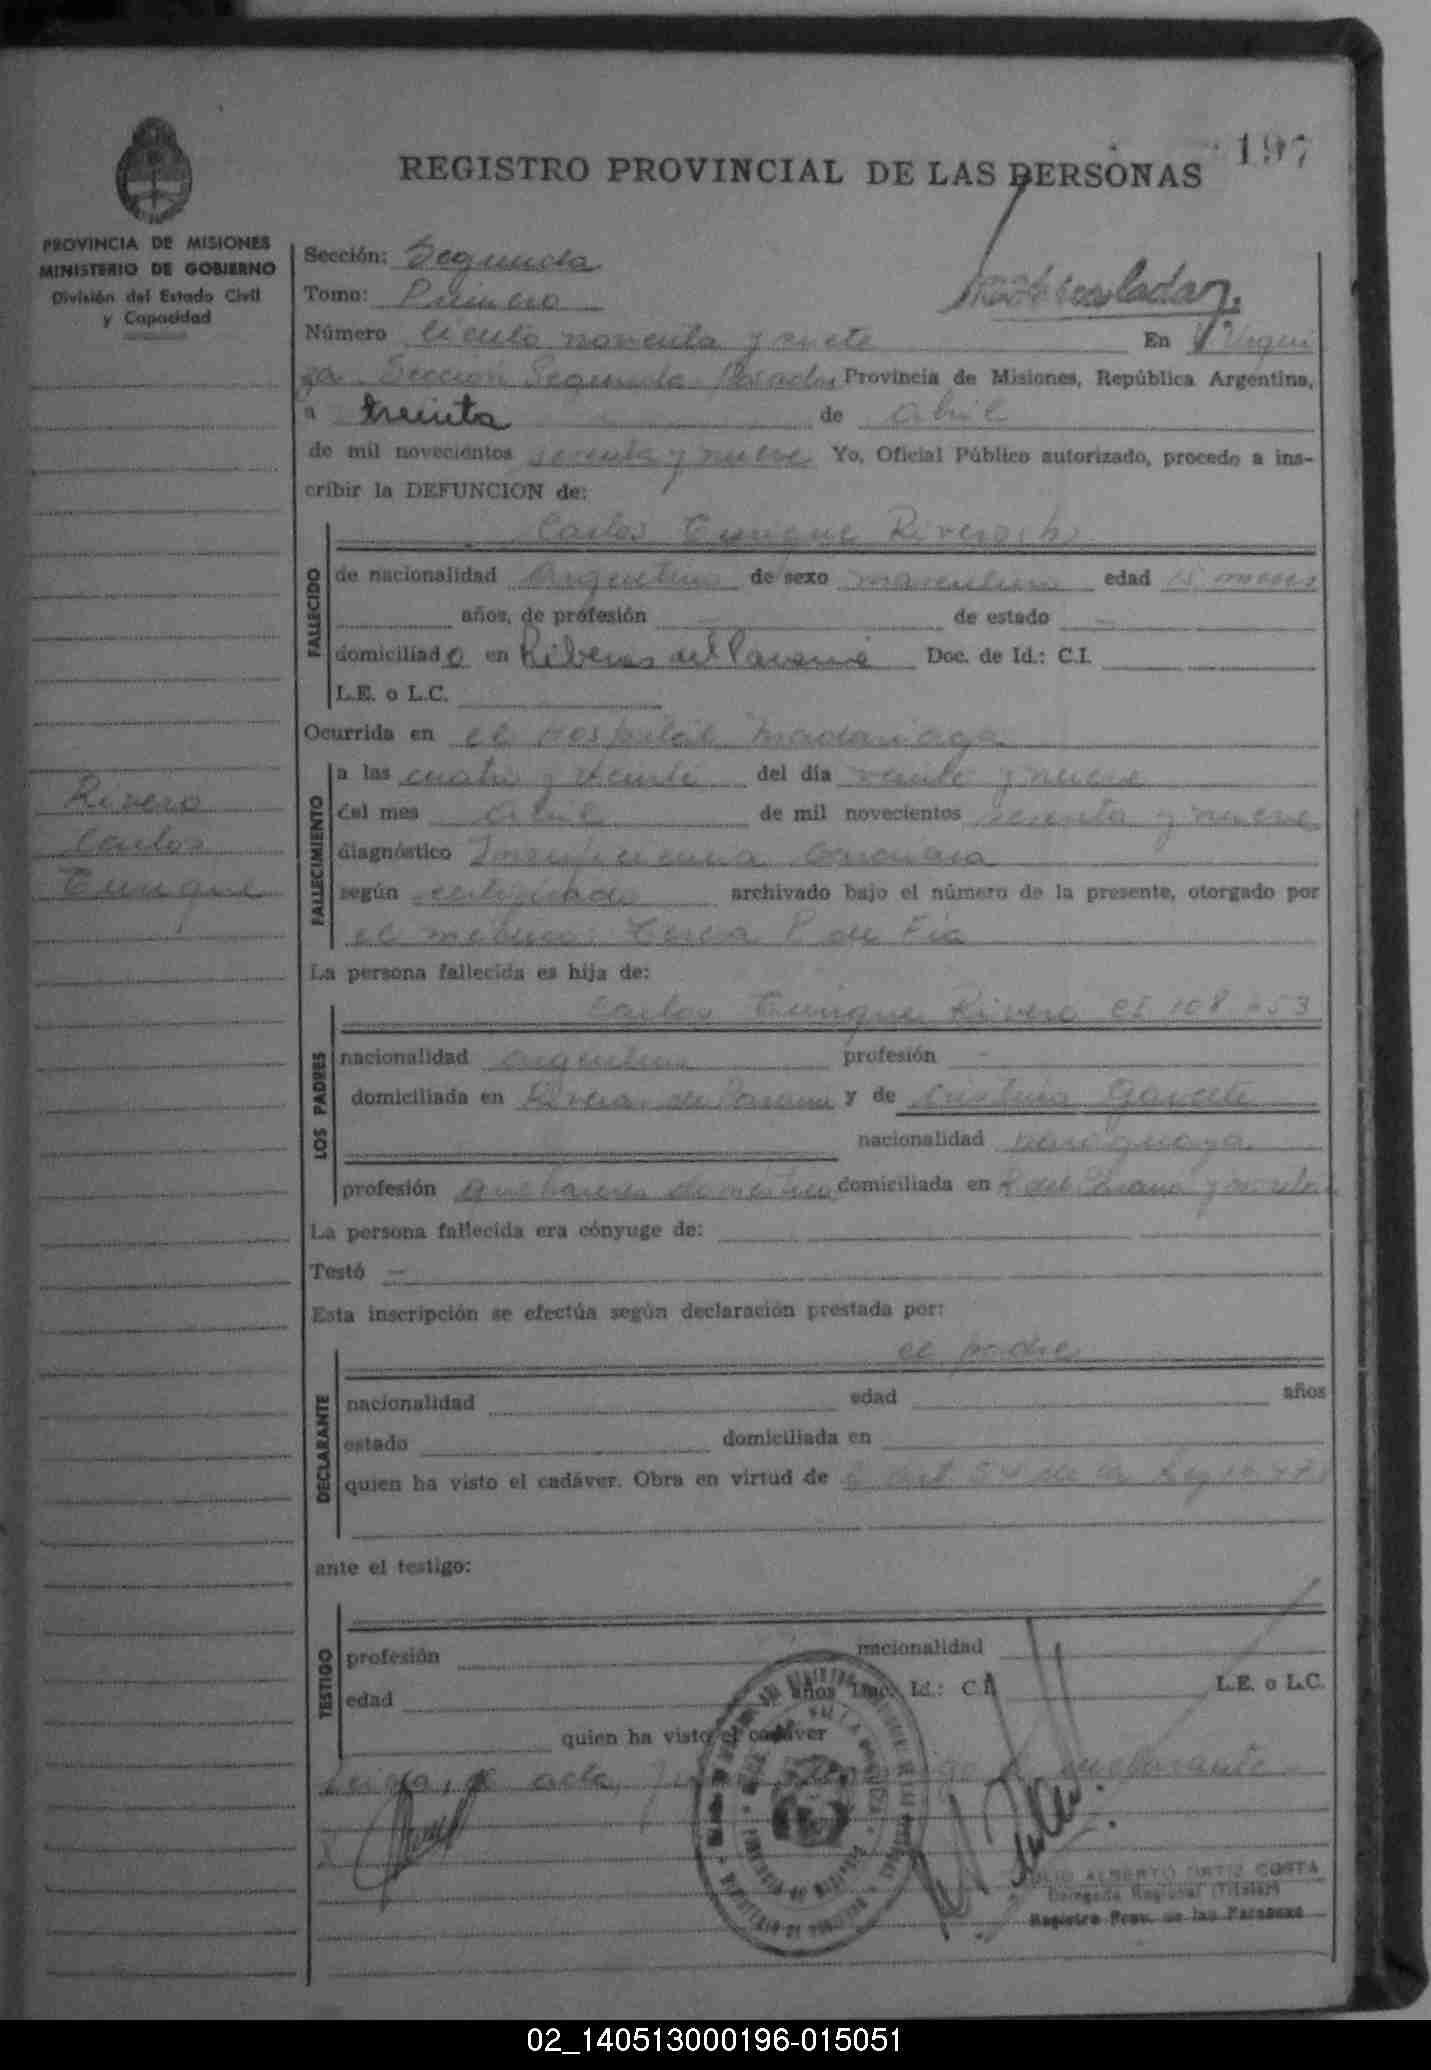 197
REGISTRO PROVINCIAL DE LAS PERSONAS
PROVINCIA DE MISIONES
MINISTERIO DE GOBIERNO
División del Estado Civil
y Capacidad
Sección: Segunda
Tomo: Primero
Número ciento noventa y siete En V. Urqui
za Sección Segunda Posadas Provincia de Misiones, República Argentina,
a treinta de abril
de mil novecientos setenta y nueve Yo, Oficial Público autorizado, procedo a ins-
cribir la DEFUNCION de:
Carlos Enrique Rivero
FALLECIDO
de nacionalidad argentina de sexo masculino edad 15 meses
años, de profesión - de estado -
domiciliado en Riberas del Paraná Doc. de Id.: C.I.
L.E. o L.C.
Ocurrida en el Hospital Madariaga
FALLECIMIENTO
a las cuatro y veinte del día veinte y nueve
del mes abril de mil novecientos setenta y nueve
diagnóstico Insuficiencia
según certificado archivado bajo el número de la presente, otorgado por
el médico: P. de
La persona fallecida es hija de:
Rivero
Carlos
Enrique
LOS PADRES
Carlos Enrique Rivero CI 108
nacionalidad argentina profesión -
domiciliada en Riberas del Paraná y de Cristina Gavete
nacionalidad paraguaya
profesión quehaceres domésticos domiciliada en R. del Paraná
La persona fallecida era cónyuge de:
Testó —
Esta inscripción se efectúa según declaración prestada por:
el padre
DECLARANTE
nacionalidad edad años
estado domiciliada en
quien ha visto el cadáver. Obra en virtud de art. 54 de la Ley
ante el testigo:
TESTIGO
profesión nacionalidad
edad años Doc. Id.: C.I. L.E. o L.C.
quien ha visto el cadáver
Leída, el acta,
JULIO ALBERTO ORTIZ COSTA
Delegado Regional (Titular)
Registro Prov. de las Personas
02_140513000196-015051